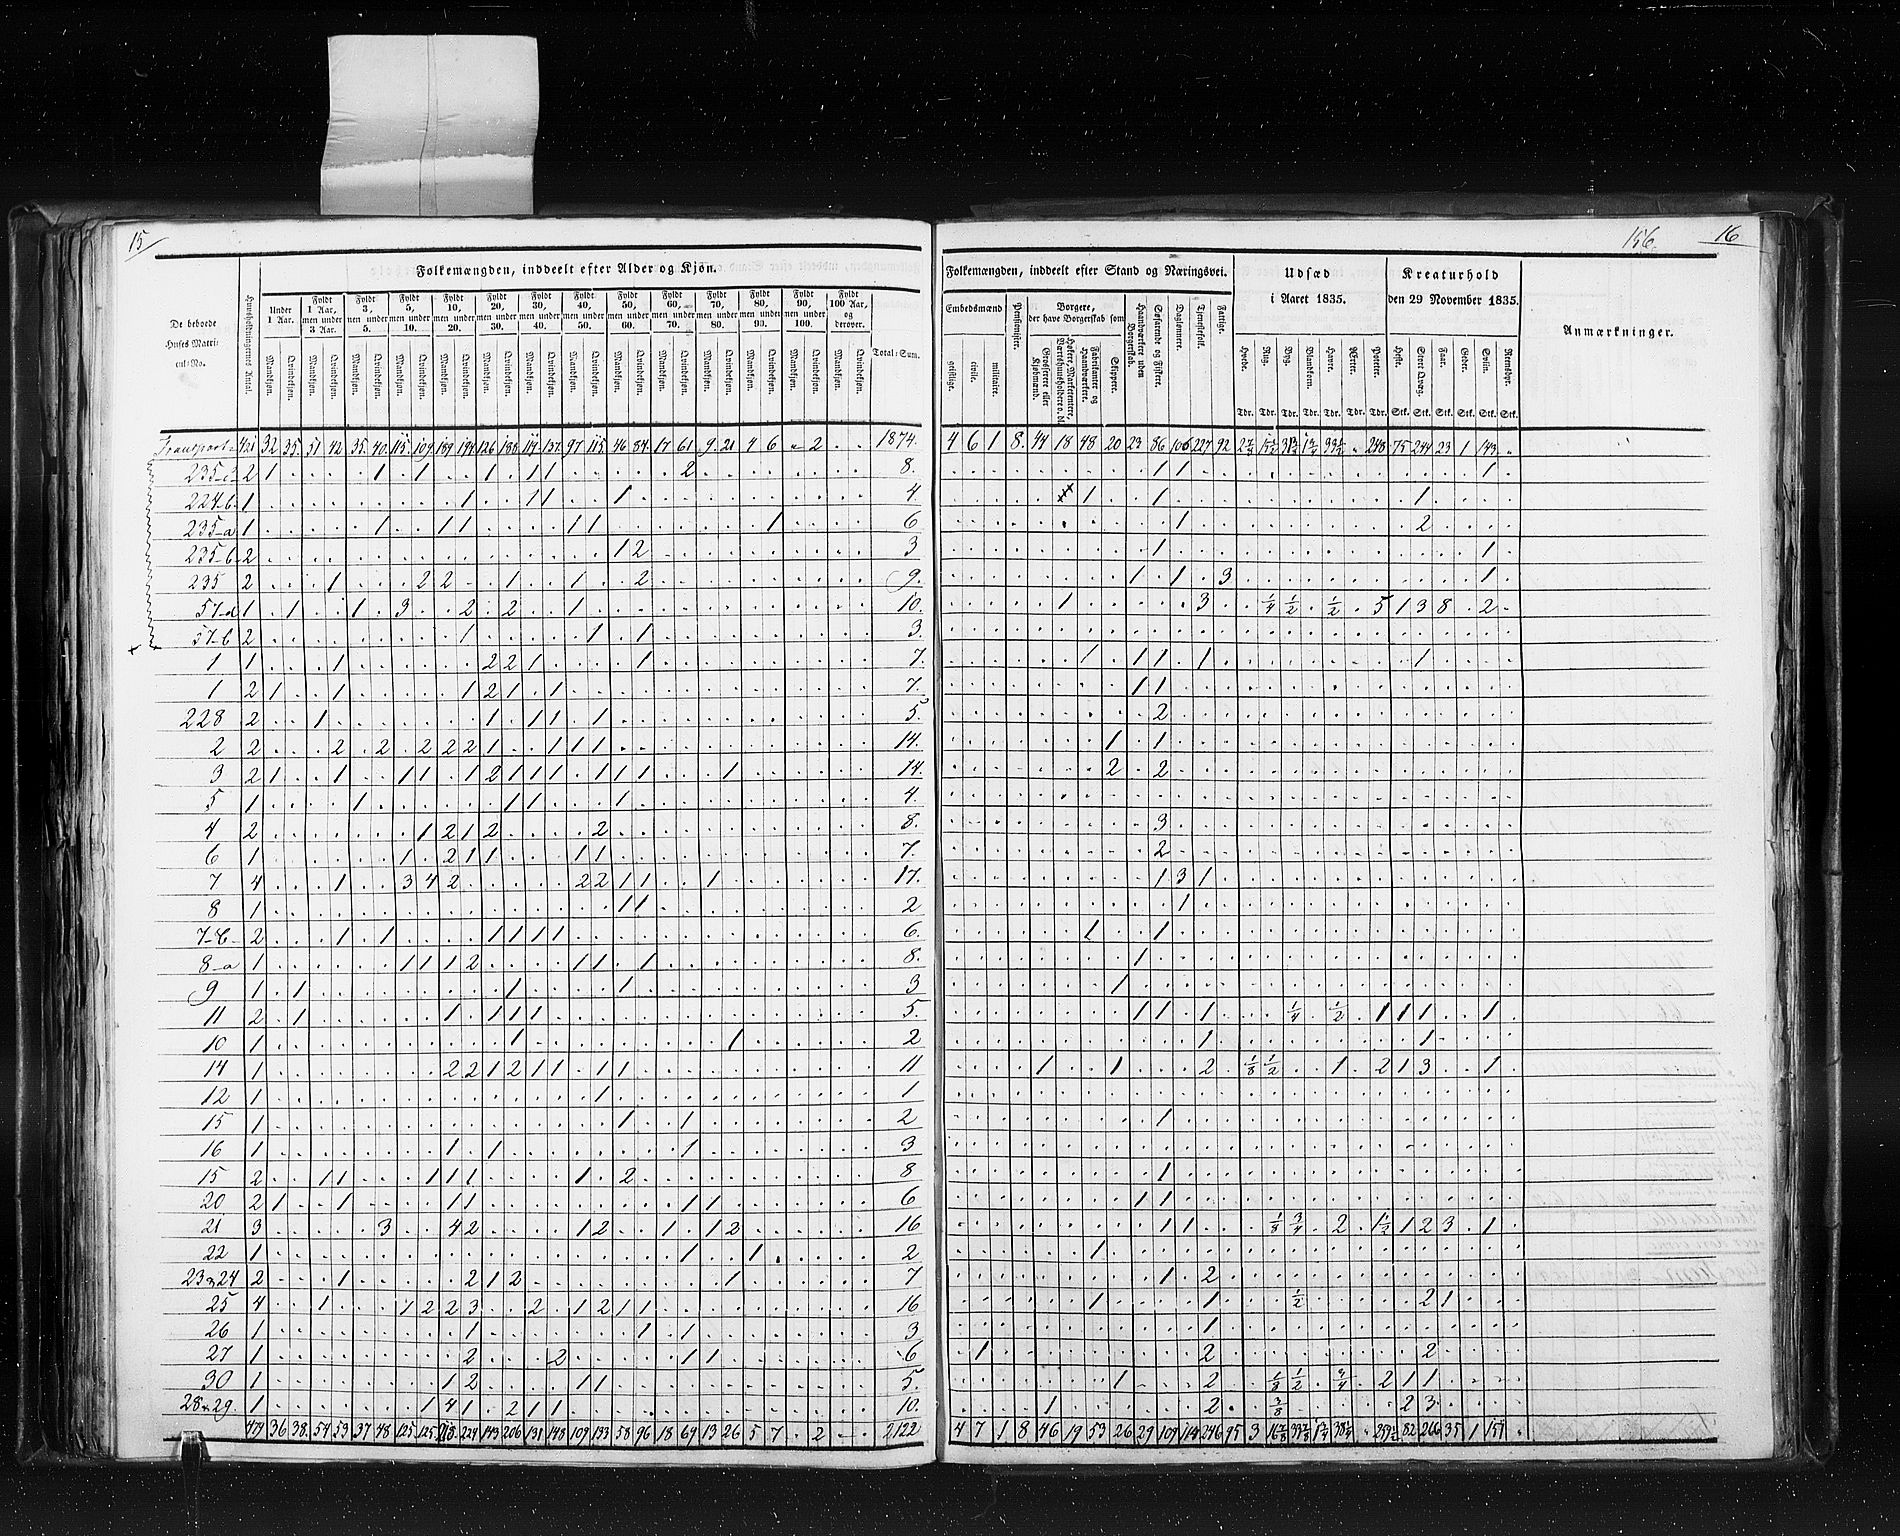 15
156.
16
Folkemængden, inddeelt efter Alder og Kjøn.
Folkemængden, inddeelt efter Stand og Næringsvei.
Udsæd
i Aaret 1835.
Kreaturhold
den 29 November 1835.
Anmærkninger.
De beboede
Huses Matri-
cul-No.
Huusholdningernes Antal.
Under
1 Aar.
Fyldt
1 Aar,
men under
3 Aar.
Fyldt
3,
men under
5.
Fyldt
5,
men under
10.
Fyldt
10,
men under
20.
Fyldt
20,
men under
30.
Fyldt
30,
men under
40.
Fyldt
40,
men under
50.
Fyldt
50,
men under
60.
Fyldt
60,
men under
70.
Fyldt
70,
men under
80.
Fyldt
80,
men under
90.
Fyldt
90,
men under
100.
Fyldt
100 Aar,
og
derover.
Total-Sum.
Mandkjøn. Qvindekjøn.
Embedsmænd
geistlige. civile. militaire.
Pensionister.
Borgere,
der have Borgerskab som
Grosserere eller Kjøbmænd.
Høkere, Marketentere, Værtshuusholdere o. dl.
Fabrikanter og Haandværkere.
Skippere.
Haandværkere uden Borgerskab.
Søfarende og Fiskere.
Daglønnere.
Tjenestefolk.
Fattige.
Hvede. Rug. Byg. Blandkorn. Havre. Erter. Poteter.
Tdr. Tdr. Tdr. Tdr. Tdr. Tdr. Tdr.
Heste. Stort Qvæg. Faar. Geder. Sviin. Reensdyr.
Stk. Stk. Stk. Stk. Stk. Stk.
Transport 421 32 35 51 42 35 40 115 109 189 194 126 188 119 137 97 115 46 84 17 61 9 21 4 6 2 1874. 4 6 1 8 44 18 48 20 23 86 106 227 92 248 75 244 23 1 143
2 1 1 1 1 1 1 2 8. 1 1 1
224-b 1 1 1 1 1 4. 1 1 1
235-a 1 1 1 1 1 1 1 6 1 2
235-b 2 1 2 3 1 1
235 2 1 2 2 1 1 2 9. 1 1 3 1
57-a 1 1 1 3 2 2 1 10. 1 3 1/4 1/2 1/2 5 1 3 8 2
57-b 2 1 1 1 3.
1 1 1 2 2 1 1 7. 1 1 1 1 1
1 2 1 1 1 2 1 1 7. 1 1
228 2 1 1 1 1 1 5. 2
2 2 2 2 2 2 2 1 1 1 1 14. 1 1
3 2 1 1 1 1 1 2 1 1 1 1 1 1 1 14. 2 2
5 1 1 1 1 1 4.
4 2 1 2 1 2 2 8. 3
6 1 1 2 1 1 1 1 7. 2
7 4 1 3 4 2 2 2 1 1 1 17. 1 3 1
8 1 1 1 2 1
2 1 1 1 1 1 1 6. 1 1
8-a 1 1 1 1 2 1 1 1 8. 1
9 1 1 1 1 3 1
11 2 1 1 1 1 1 5. 1 1 1 1/4 1/2 1 1 1 1
10 1 1 1 2 1 1
14 1 2 2 1 2 1 1 1 1 11 1 1 2 1/8 1/2 1 2 1 3 1
12 1 1 1
15 1 1 1 2 1
16 1 1 1 1 3
15 2 1 1 1 1 1 1 2 8 1
20 2 1 1 1 1 1 1 6 1 1
21 3 3 4 2 1 2 1 1 2 16 1 1 1/8 3/4 2 1 1/2 1 2 3 1
22 1 1 1 2 1
23 & 24 2 1 2 1 2 1 7 1 2
25 4 1 1 2 2 3 2 1 2 1 1 16 1 1 1/2 2 1
26 1 1 1 1 3 1
27 1 2 2 1 1 6 1 2 2
30 1 1 2 1 1 5. 1 2 1/8 1/2 3/4 2 1 1
28 & 29. 1 1 4 1 2 1 1 10. 1 2 3/8 2 3
479 36 38 54 53 37 48 125 125 218 224 143 206 131 148 109 133 58 96 18 69 13 26 5 7 2 2122 4 7 1 8 46 19 53 26 29 109 114 246 95 3 82 266 35 1 151